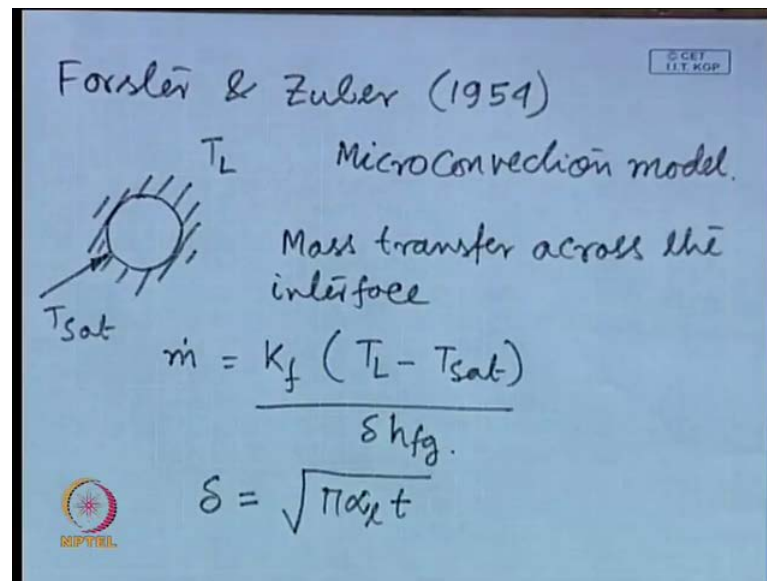 © CET
I.I.T. KGP
Forster & Zuber (1954)
T_L Microconvection model.
Mass transfer across the
interface
T_sat
ṁ = K_f (T_L - T_sat)
δ h_fg.
δ = √πα_l t
NPTEL